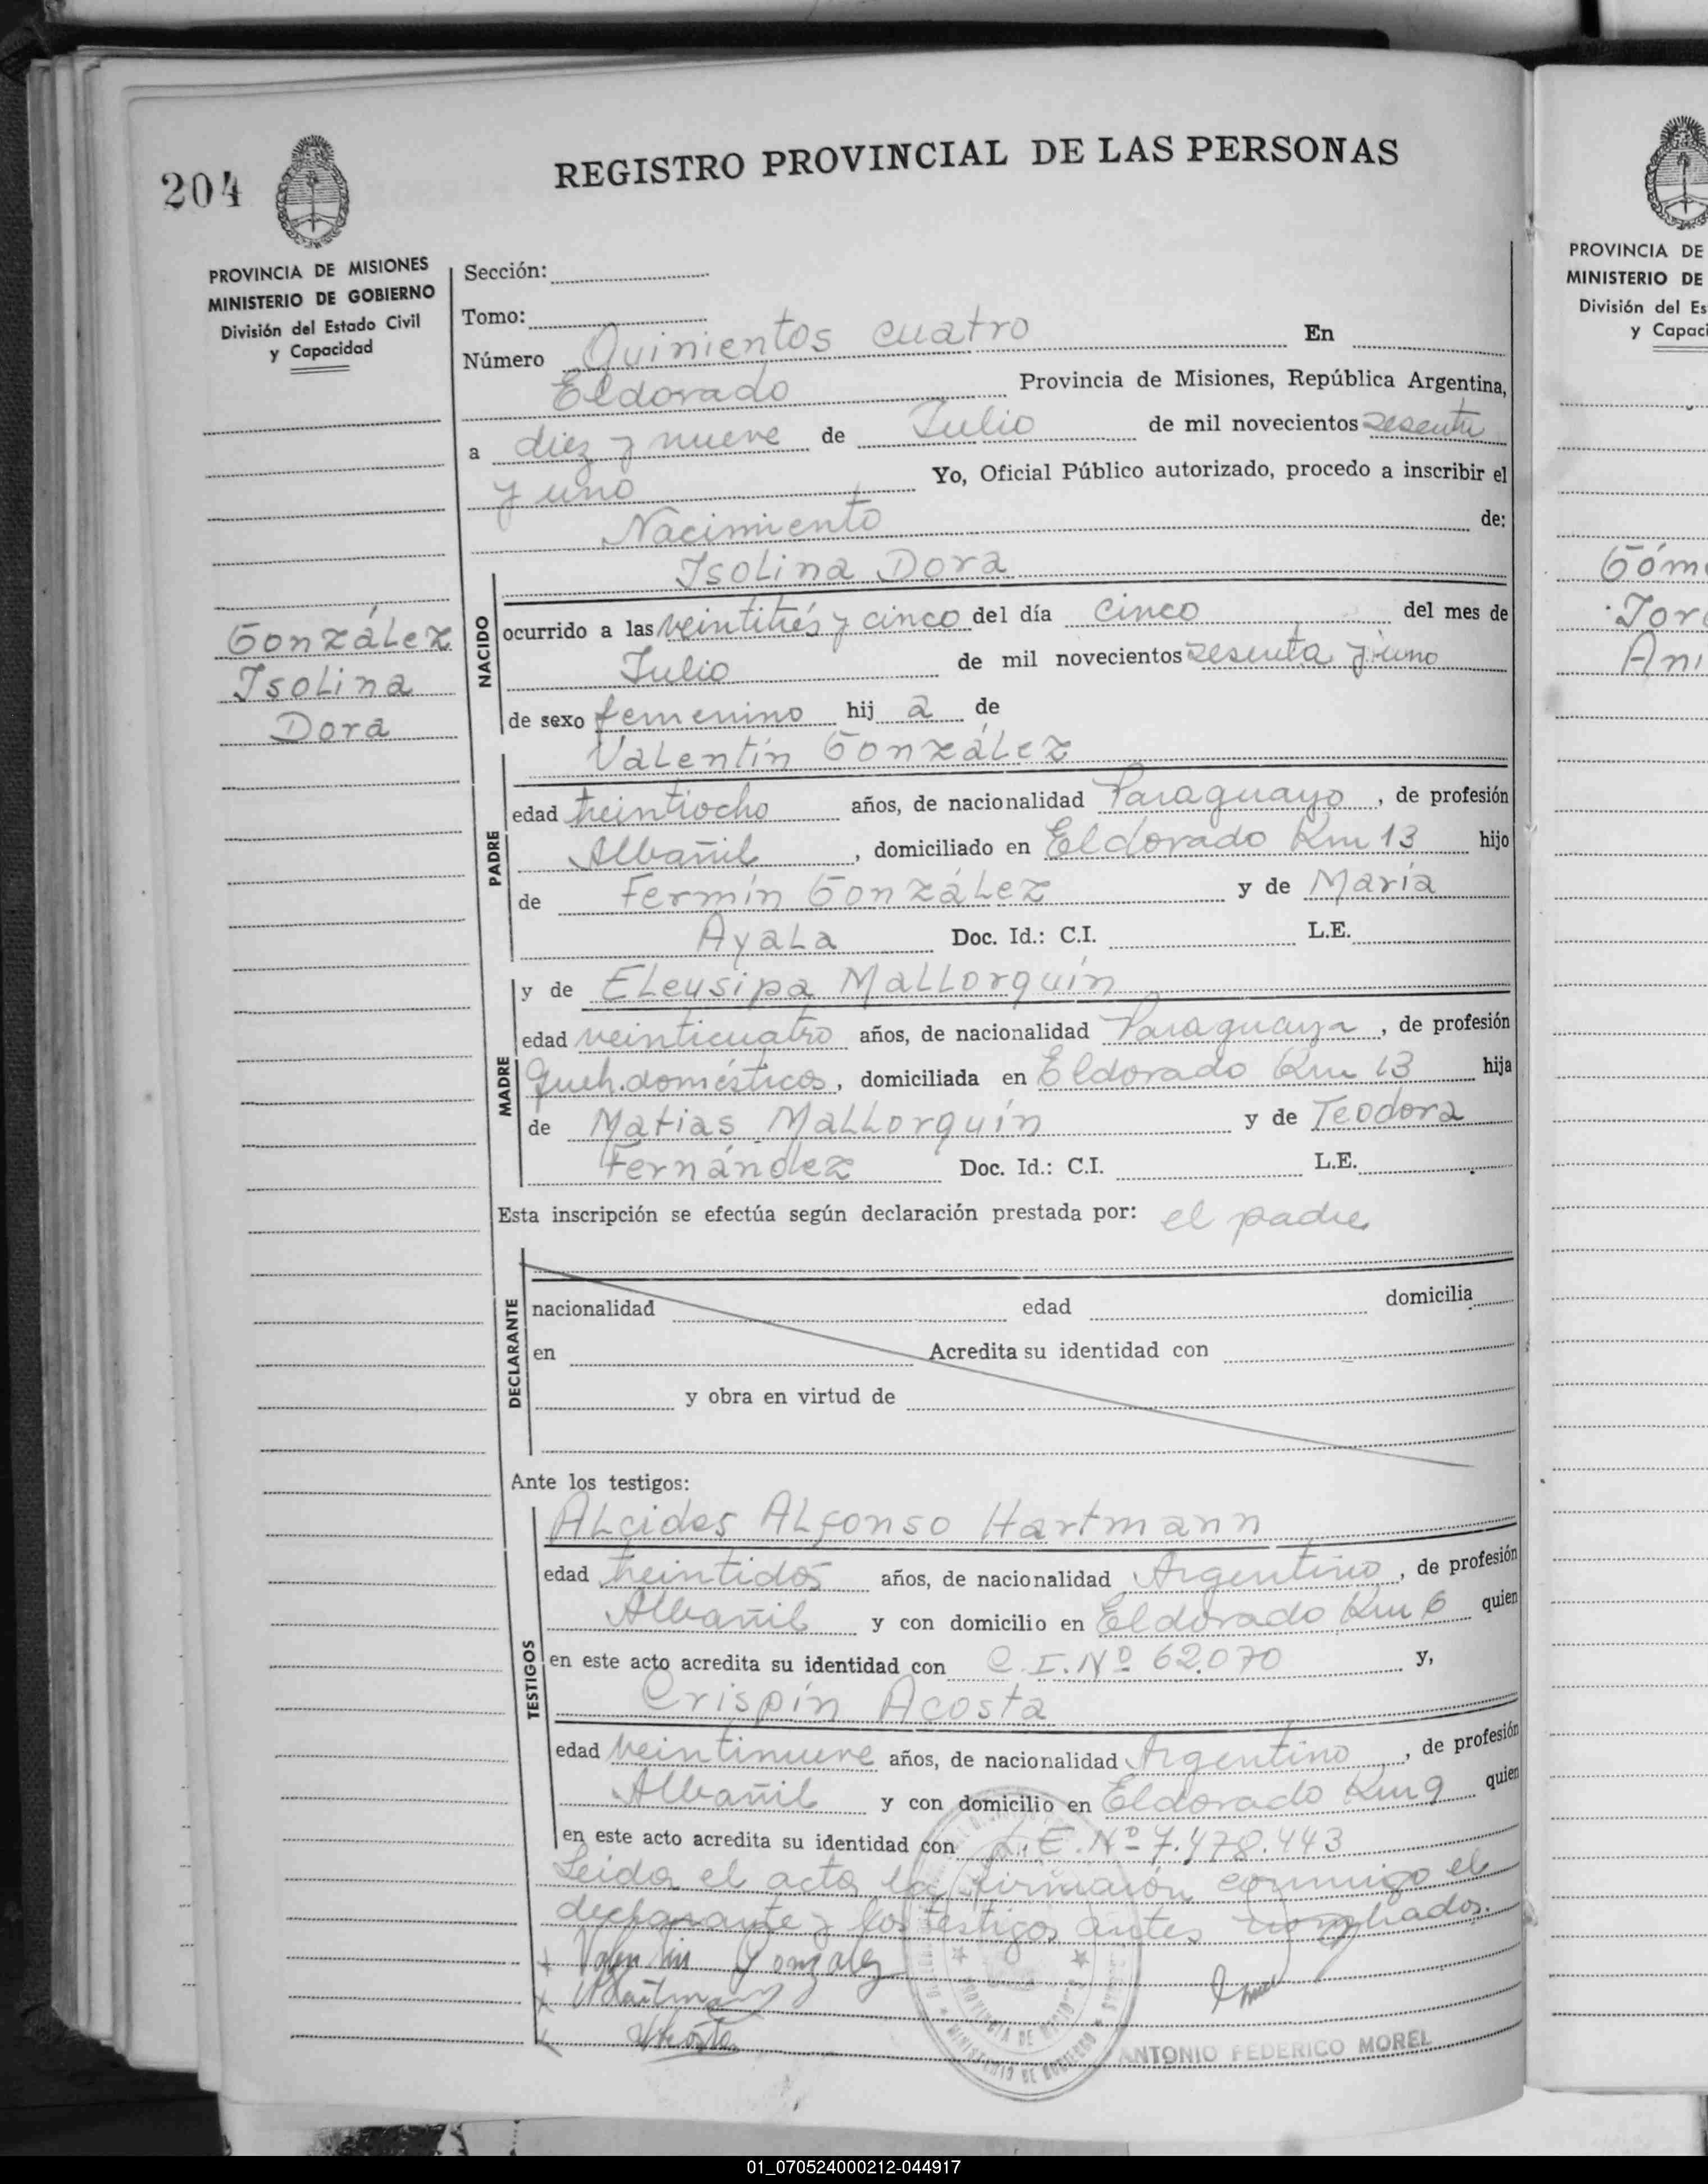 204
REGISTRO PROVINCIAL DE LAS PERSONAS
PROVINCIA DE MISIONES
MINISTERIO DE GOBIERNO
División del Estado Civil
y Capacidad
González
Isolina
Dora
Sección:
Tomo:
Número Quinientos cuatro En
Eldorado Provincia de Misiones, República Argentina,
a diez y nueve de Julio de mil novecientos sesenta
y uno Yo, Oficial Público autorizado, procedo a inscribir el
Nacimiento de:
NACIDO
Isolina Dora
ocurrido a las veintitrés y cinco del día cinco del mes de
Julio de mil novecientos sesenta y uno
de sexo femenino hija de
PADRE
Valentín González
edad treintiocho años, de nacionalidad Paraguayo, de profesión
Albañil, domiciliado en Eldorado Km 13 hijo
de Fermín González y de María
Ayala Doc. Id.: C.I. L.E.
MADRE
y de Eleusipa Mallorquín
edad veinticuatro años, de nacionalidad Paraguaya, de profesión
Queh. domésticos, domiciliada en Eldorado Km 13 hija
de Matias Mallorquín y de Teodora
Fernández Doc. Id.: C.I. L.E.
Esta inscripción se efectúa según declaración prestada por: el padre
DECLARANTE
nacionalidad edad domicilia
en Acredita su identidad con
y obra en virtud de
Ante los testigos:
TESTIGOS
Alcides Alfonso Hartmann
edad treintidós años, de nacionalidad Argentino, de profesión
Albañil y con domicilio en Eldorado Km 6 quien
en este acto acredita su identidad con C.I. Nº 62.070 y,
Crispín Acosta
edad veintinueve años, de nacionalidad Argentino, de profesión
Albañil y con domicilio en Eldorado Km 9 quien
en este acto acredita su identidad con L.E. Nº 7.478.443
Leida el acta la firmaron conmigo el
declarante y los testigos antes nombrados.
Valentin Gonzalez
Hartmann
Acosta
PROVINCIA DE MISIONES
MINISTERIO DE GOBIERNO
ANTONIO FEDERICO MOREL
PROVINCIA DE
MINISTERIO DE
División del Es
y Capaci
Góm
Jor
Ani
01_070524000212-044917